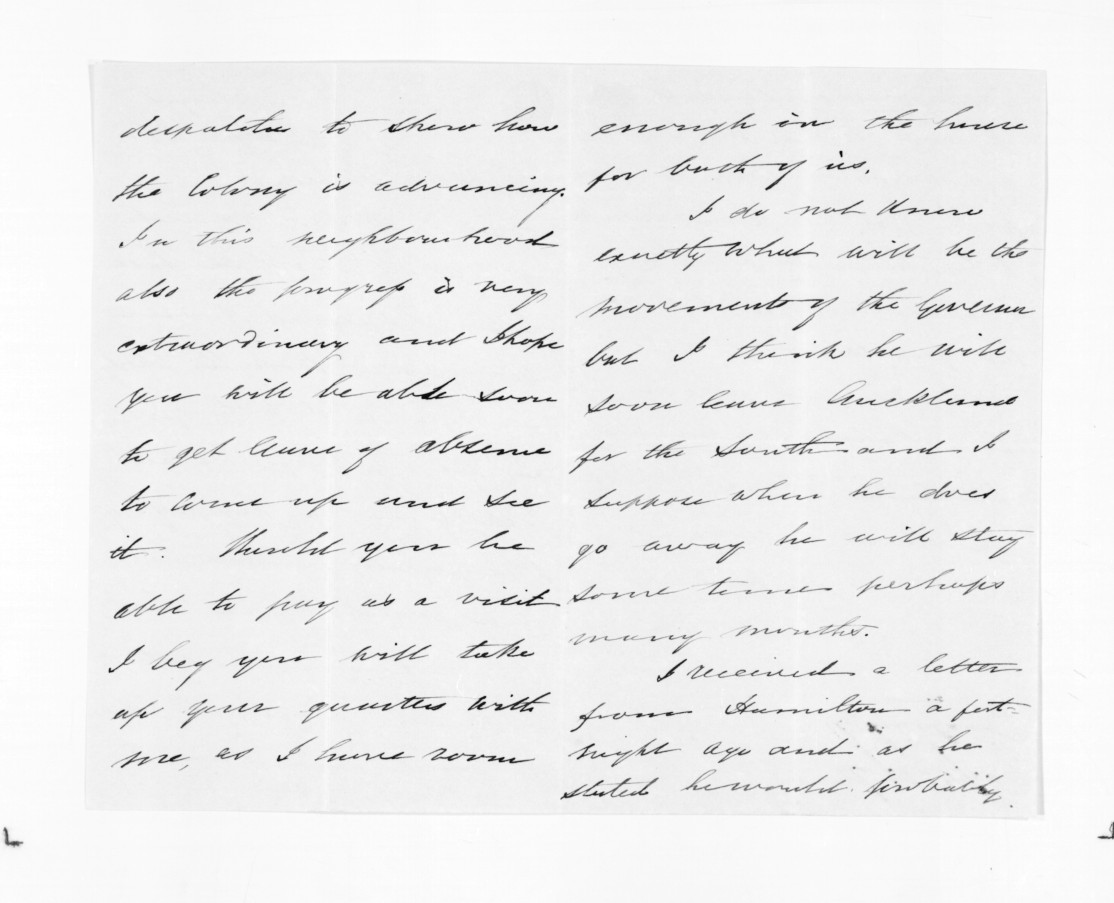 despatches to show how
the Colony is advancing.
In this neighbourhood
also the progress is very
extraordinary and I hope
you will be able soon
to get leave of absence
to come up and see
it. Should you be
able to pay us a visit
I beg you will take
up your quarters with
me, as I have room
enough in the house
for both of us.
I do not know
exactly what will be the
movements of the Governor
but I think he will
soon leave Auckland
for the South and I
suppose when he does
go away he will stay
some time perhaps
many months.
I received a letter
from Hamilton a fort=
night ago and as he
stated he would probably